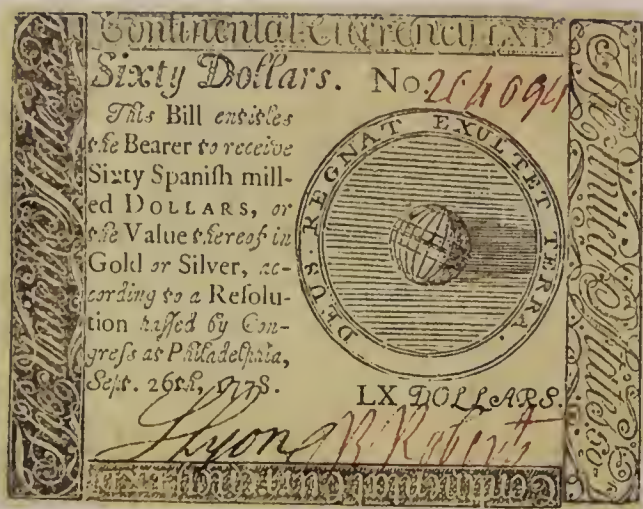 Continental Currency LXD
Sixty Dollars. No.
This Bill entitles
the Bearer to receive
Sixty Spaniſh mill-
ed DOLLARS, or
the Value thereof in
Gold or Silver, ac-
cording to a Reſolu-
tion paſſed by Con-
greſs at Philadelphia,
Sept. 26th, 1778.
DEUS REGNAT EXULTET TERRA.
LX DOLLARS.
Lyon R. Roberts
The United States
The United States
Continental Currency